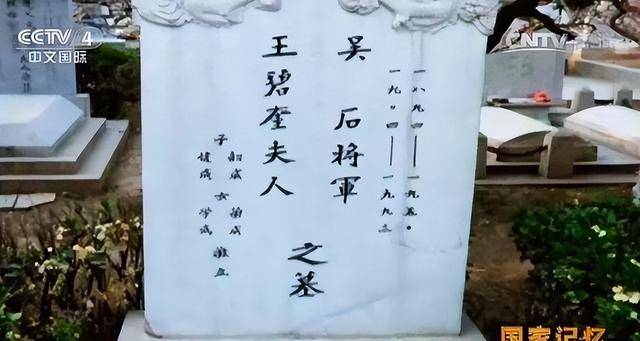 CCTV 4
中文国际
一八九四——一九五〇
一九〇四——一九九三
吴石将軍
王碧奎夫人
之墓
子韶成女蘭成
健成 學成
国家记忆